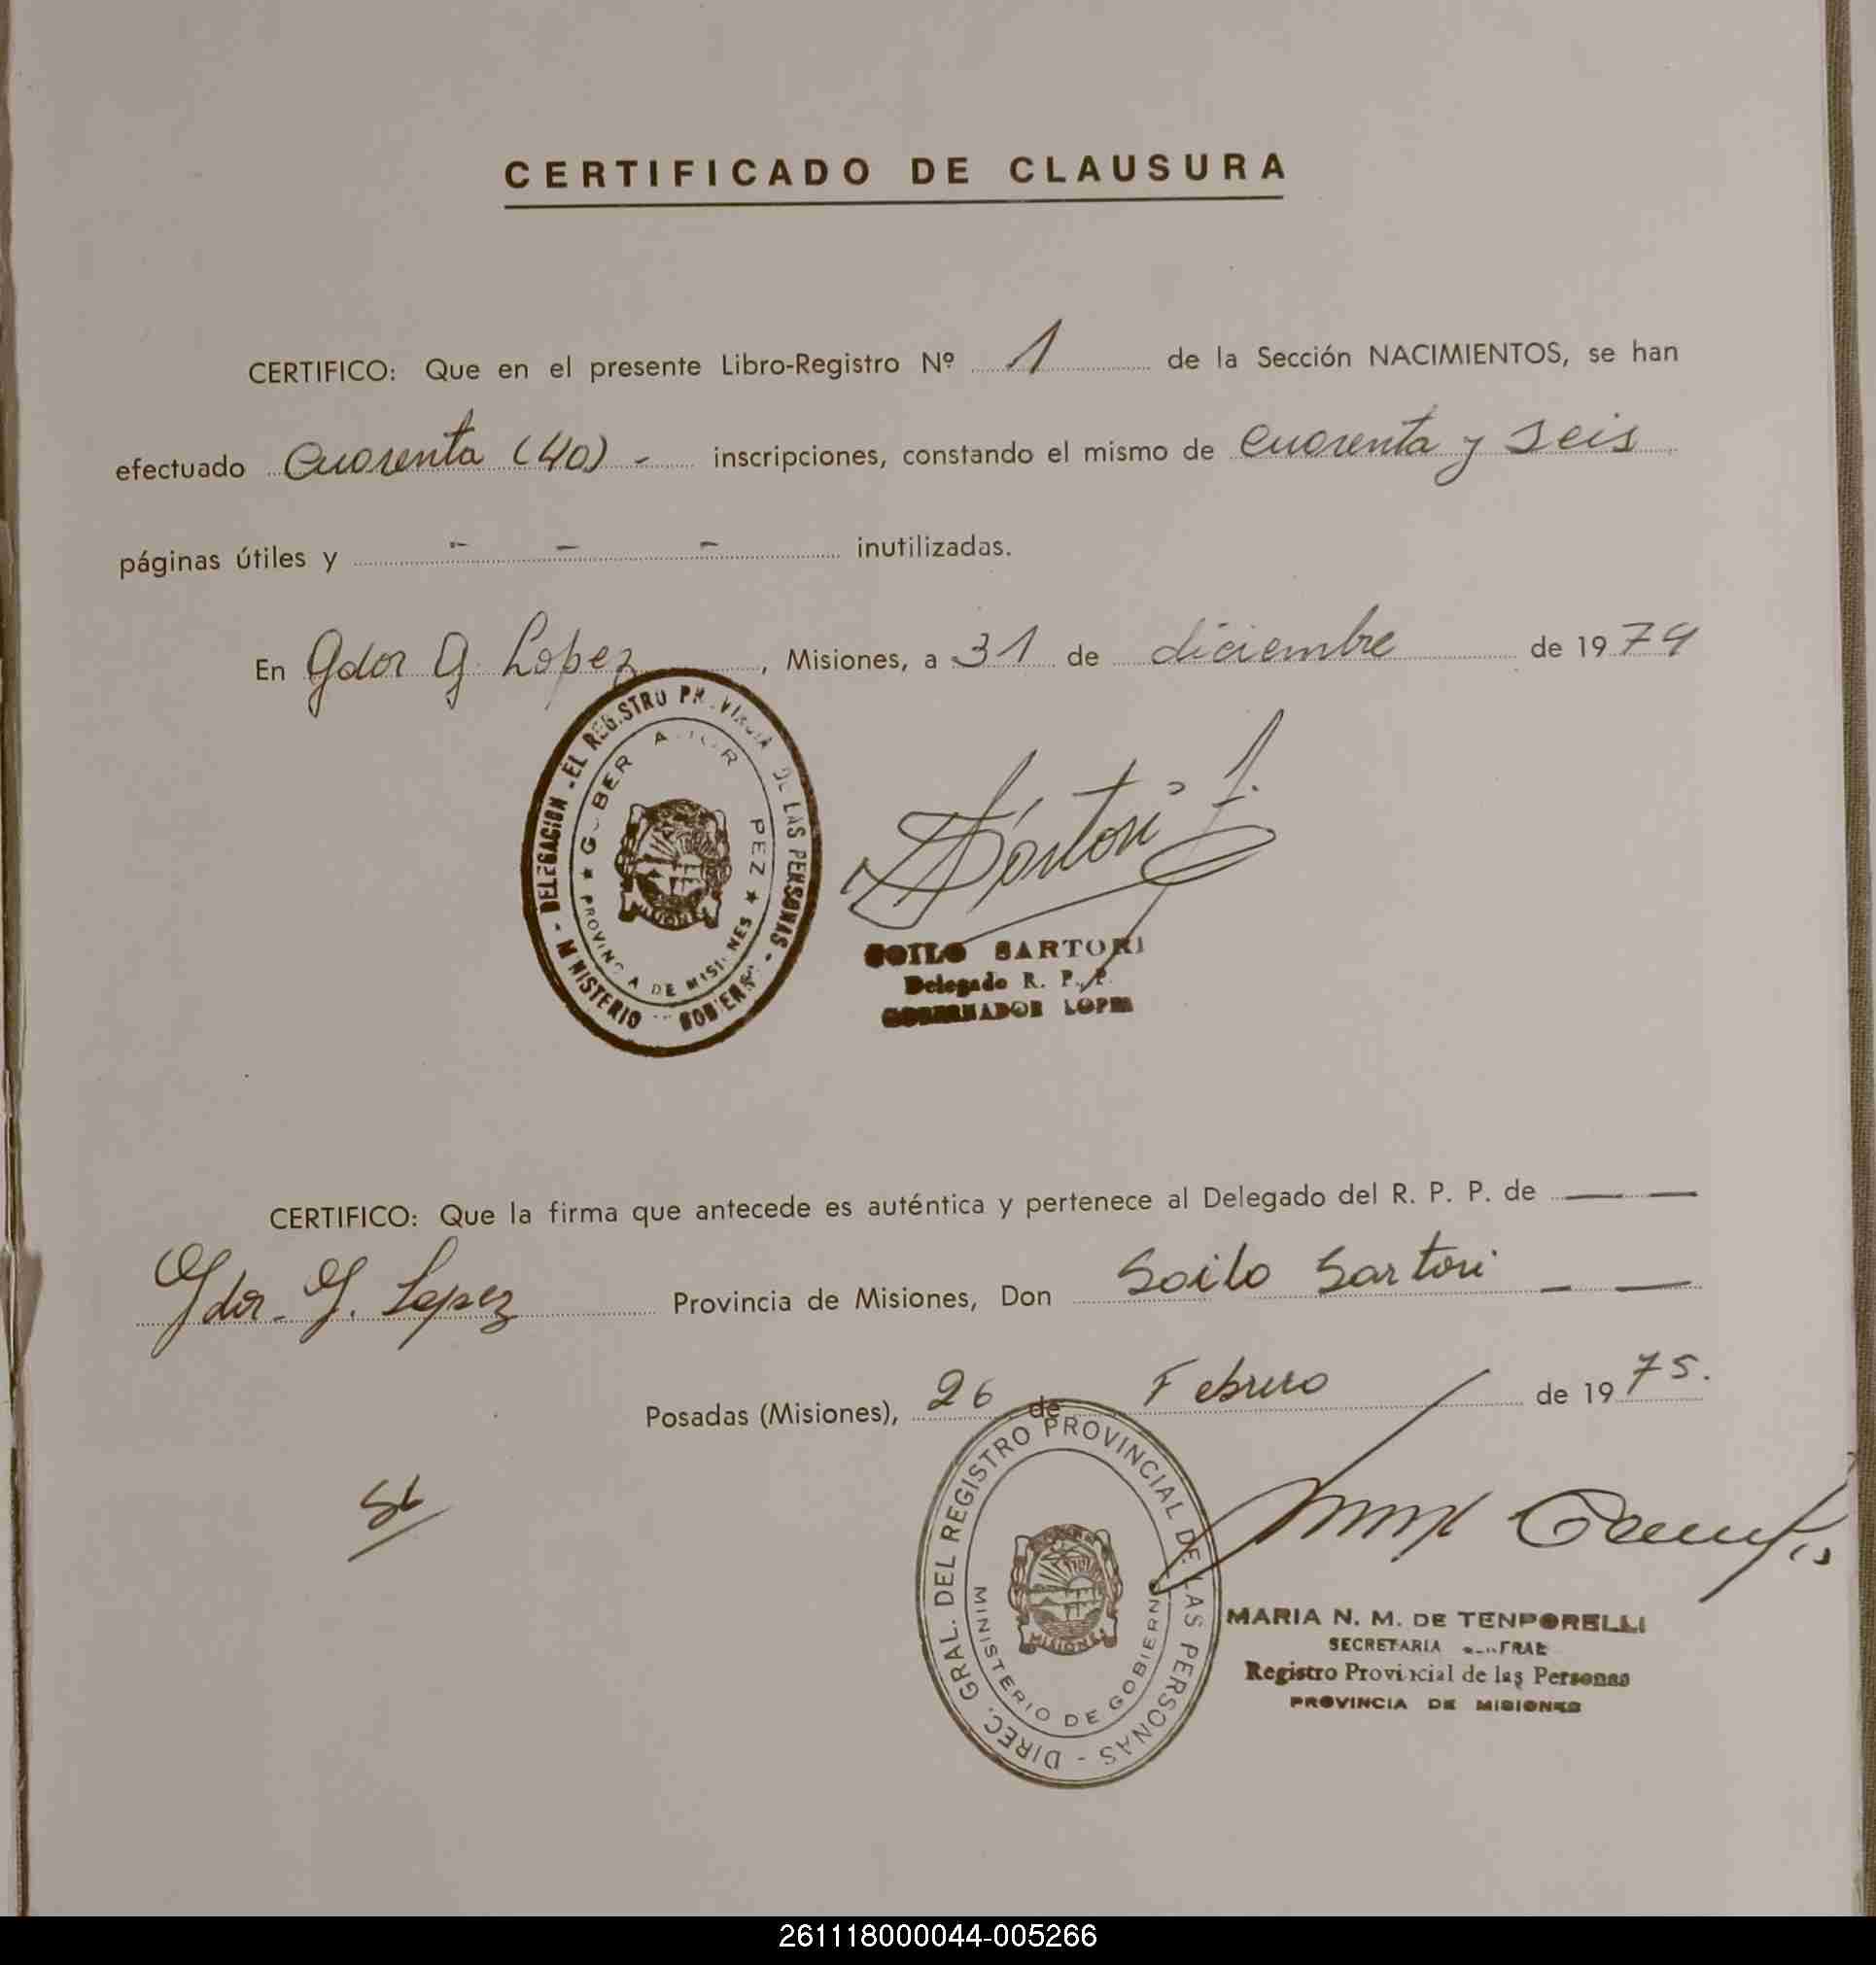 CERTIFICADO DE CLAUSURA
CERTIFICO: Que en el presente Libro-Registro Nº 1 de la Sección NACIMIENTOS, se han
efectuado Cuarenta (40) - inscripciones, constando el mismo de Cuarenta y seis
páginas útiles y - - - inutilizadas.
En Gdor G. Lopez, Misiones, a 31 de diciembre de 1974
DELEGACION DEL REGISTRO PROVINCIAL DE LAS PERSONAS - MINISTERIO GOBIERNO
PROVINCIA DE MISIONES
MISIONES
Sartori
SOILO SARTORI
Delegado R. P. P.
GOBERNADOR LOPEZ
CERTIFICO: Que la firma que antecede es auténtica y pertenece al Delegado del R. P. P. de — —
Gdor. G. Lopez Provincia de Misiones, Don Soilo Sartori — —
Posadas (Misiones), 26 de Febrero de 1975.
DIREC. GRAL. DEL REGISTRO PROVINCIAL DE LAS PERSONAS -
MINISTERIO DE GOBIERNO
MISIONES
MARIA N. M. DE TENPORELLI
SECRETARIA
Registro Provincial de las Personas
PROVINCIA DE MISIONES
261118000044-005266